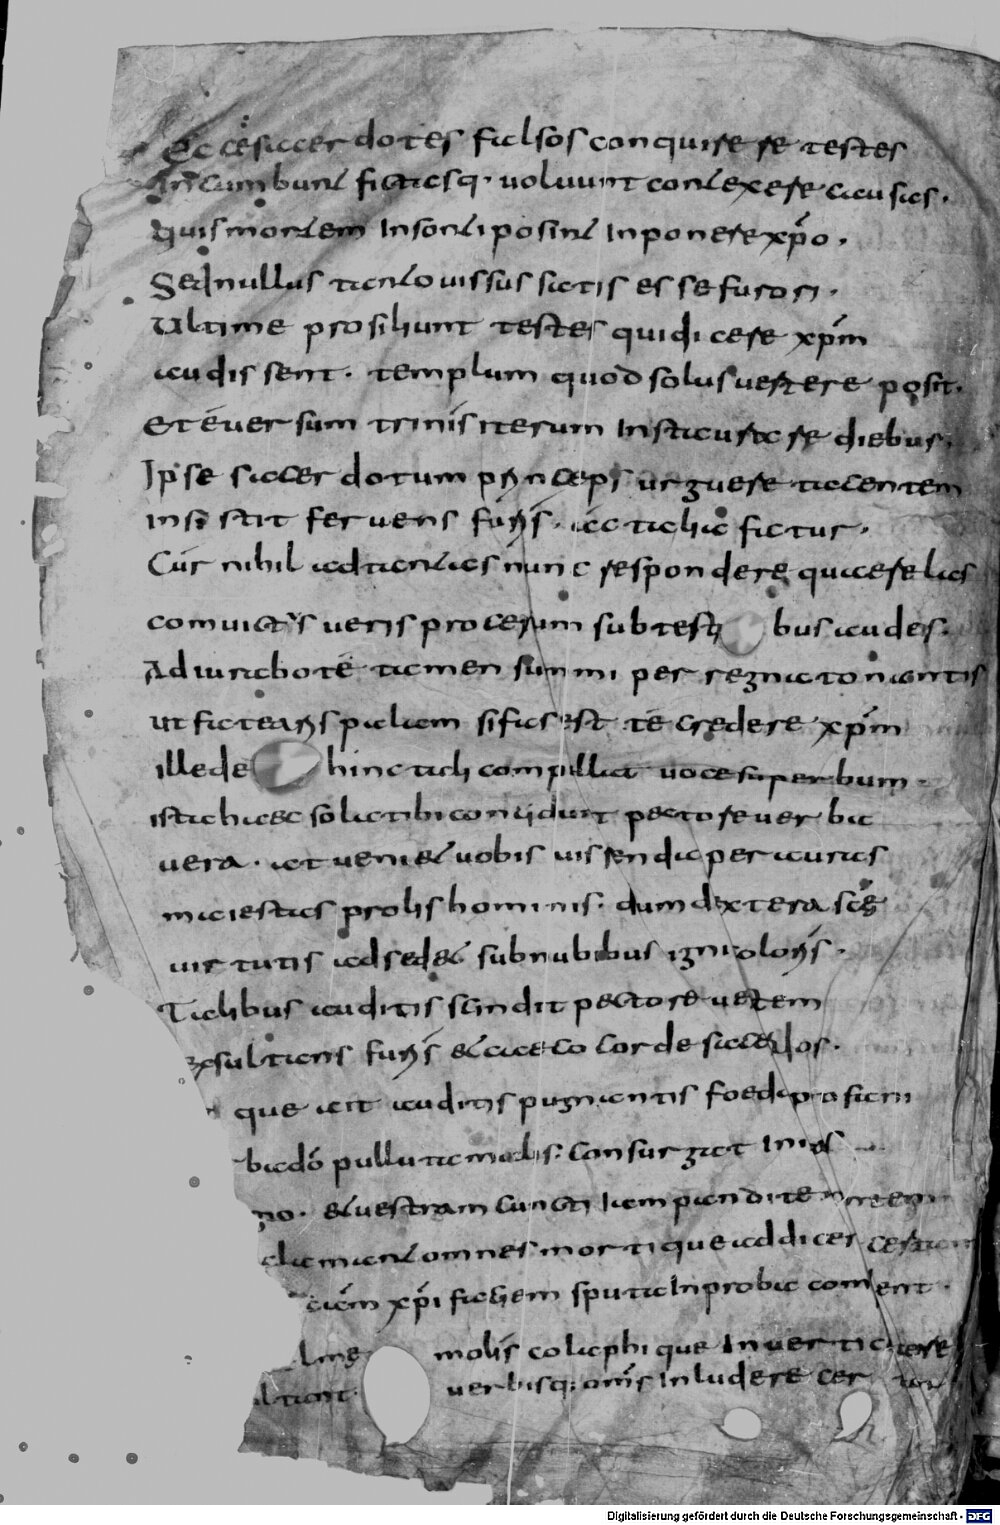 Ecce sacerdotes falsos conquirere testes
Incumbunt fictasq· voluunt contexere causas.
quis mortem Insonti posint Inponere xp̄o.
Sed nullus tanto uissus satis esse furori.
Ultime prosiliunt testes qui dicere xp̄m
audissent. templum quod solus uertere posit.
et euersum trinis iterum Instaurare diebus.
Ipse sacerdotum princeps urguere tacentem
insistit feruens furiis. ac talia fatur.
Cur nihil ad tantas nunc respondere querelas
conuictus ueris procerum sub testibus audes.
Adiurabo te tamen summi per regna tonantis
ut fatearis palam si fas est te credere xp̄m
ille dehinc tali compellat uoce superbum
ista haec sola tibi concidunt pectore uerba
uera. at ueniet uobis uissenda per auras
maiestas prolis hominis. dum dextera scē
uirtutis ad sedet sub nubibus ignicoloris.
Talibus auditis scindit pectore uestem
exsultans furiis et caeco corde sacerdos.
que ait auditis pugnantis foeda profani
pulluta modis: Consurgat
et uestram cuncti iam pandite
clamant omnes mortique addicere certant
xp̄i faciem sputa Inproba conlent.
molis colaphique In uertice
uerbisq; omnis Inludere cer
Digitalisierung gefördert durch die Deutsche Forschungsgemeinschaft - DFG